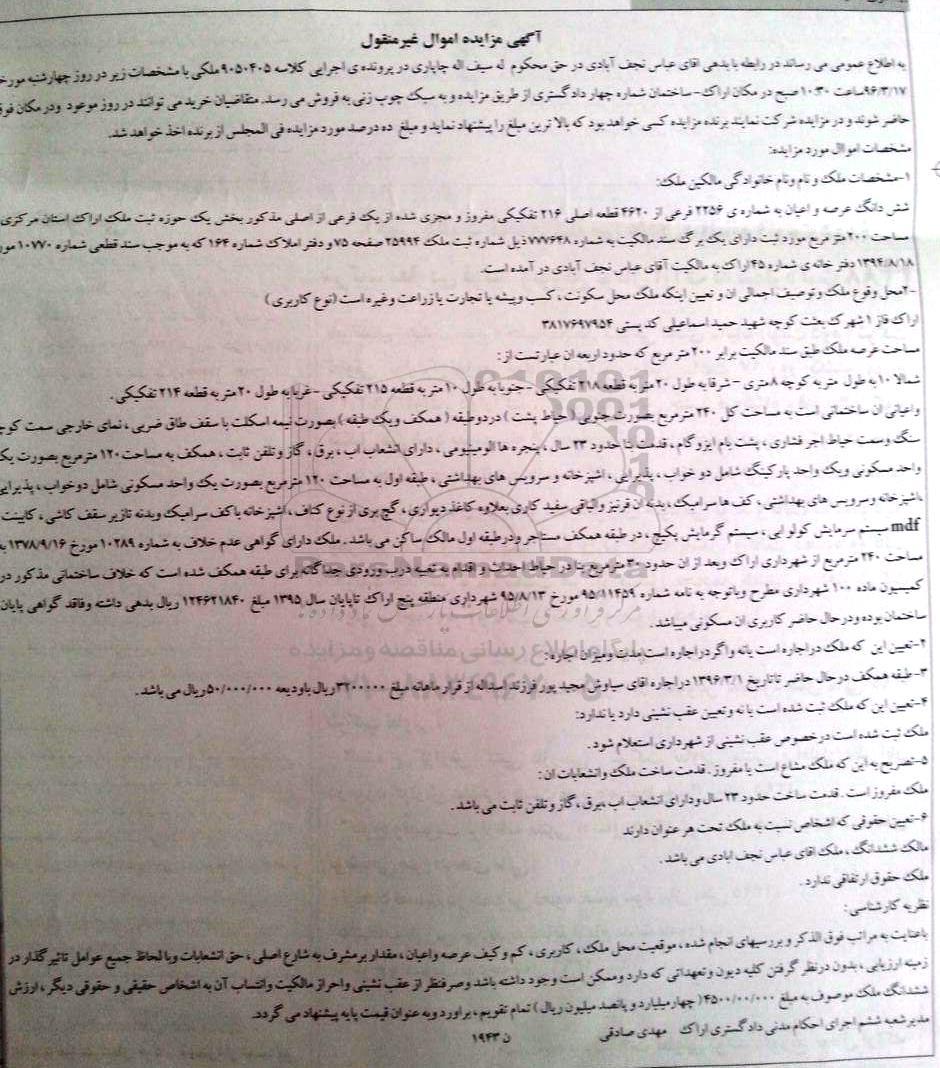 آگهی مزایده اموال غیرمنقول
به اطلاع عمومی می رساند در رابطه با بدهی آقای عباس نجف آبادی در حق محکوم له سیف اله چاپاری در پرونده ی اجرایی کلاسه ۹۰۵۰۴۰۵ ملکی با مشخصات زیر در روز چهارشنبه مورخ
۹۶/۳/۱۷ ساعت ۱۰:۳۰ صبح در مکان اراک- ساختمان شماره چهار دادگستری از طریق مزایده و به سبک چوب زنی به فروش می رسد. متقاضیان خرید می توانند در روز موعود ودر مکان فوق
حاضر شوند و در مزایده شرکت نمایند برنده مزایده کسی خواهد بود که بالا ترین مبلغ را پیشنهاد نماید و مبلغ ده درصد مورد مزایده فی المجلس از برنده اخذ خواهد شد.
مشخصات اموال مورد مزایده:
۱-مشخصات ملک و نام ونام خانوادگی مالکین ملک:
شش دانگ عرصه و اعیان به شماره ی ۲۲۵۶ فرعی از ۴۶۲۰ قطعه اصلی ۲۱۶ تفکیکی مفروز و مجزی شده از یک فرعی از اصلی مذکور بخش یک حوزه ثبت ملک اراک استان مرکزی
مساحت ۲۰۰ متر مربع مورد ثبت دارای یک برگ سند مالکیت به شماره ۷۷۷۶۴۸ ذیل شماره ثبت ملک ۲۵۹۹۴ صفحه ۷۵ و دفتر املاک شماره ۱۶۴ که به موجب سند قطعی شماره ۱۰۷۷۰ مور
۱۳۹۴/۸/۱۸ دفتر خانه ی شماره ۴۵ اراک به مالکیت آقای عباس نجف آبادی در آمده است.
-۲محل وقوع ملک وتوصیف اجمالی ان و تعیین اینکه ملک محل سکونت ، کسب وپیشه یا تجارت یا زراعت وغیره است (نوع کاربری )
اراک فاز ۱ شهرک بعثت کوچه شهید حمید اسماعیلی کد پستی ۳۸۱۷۶۹۷۹۵۴
مساحت عرصه ملک طبق سند مالکیت برابر ۲۰۰ متر مربع که حدود اربعه ان عبارتست از :
شمالا ۱۰ به طول متر به کوچه ۸ متری - شرقا به طول ۲۰ متر به قطعه ۲۱۸ تفکیکی - جنوبا به طول ۱۰ متر به قطعه ۲۱۵ تفکیکی - غربا به طول ۲۰ متر به قطعه ۲۱۴ تفکیکی .
واعیانی ان ساختمانی است به مساحت کل ۲۴۰ متر مربع بصورت جنوبی ( حیاط پشت ) در دوطبقه ( همکف ویک طبقه ) بصورت نیمه اسکلت با سقف طاق ضربی ، نمای خارجی سمت کوچ
سنگ وسمت حیاط اجر فشاری ، پشت بام ایزوگام ، قدمت بنا حدود ۲۳ سال ، پنجره ها الومینیومی ، دارای انشعاب اب ، برق ، گاز و تلفن ثابت ، همکف به مساحت ۱۲۰ مترمربع بصورت یک
واحد مسکونی ویک واحد پارکینگ شامل دو خواب ، پذیرایی ، اشپزخانه و سرویس های بهداشتی ، طبقه اول به مساحت ۱۲۰ مترمربع بصورت یک واحد مسکونی شامل دوخواب ، پذیرایی
،اشپزخانه وسرویس های بهداشتی ، کف ها سرامیک ، بدنه ان قرنیز والباقی سفید کاری بعلاوه کاغذ دیواری ، گچ بری از نوع کناف ، اشپزخانه باکف سرامیک وبدنه تازیر سقف کاشی ، کابینت
mdf سیستم سرمایش کولر ابی ، سیستم گرمایش پکیج ، در طبقه همکف مستاجر ودرطبقه اول مالک ساکن می باشد . ملک دارای گواهی عدم خلاف به شماره ۱۰۲۸۹ مورخ ۱۳۷۸/۹/۱۶ به
مساحت ۲۴۰ مترمربع از شهرداری اراک وبعد از ان حدود ۳۰ مترمربع بنا در حیاط احداث و اقدام به تعبیه درب ورودی جداگانه برای طبقه همکف شده است که خلاف ساختمانی مذکور در
کمیسون ماده ۱۰۰ شهرداری مطرح وباتوجه به نامه شماره ۹۵/۱۱۴۵۹ مورخ ۹۵/۸/۱۳ شهرداری منطقه پنج اراک تاپایان سال ۱۳۹۵ مبلغ ۱۲۴۶۲۱۸۴۰ ریال بدهی داشته وفاقد گواهی پایان
ساختمان بوده ودرحال حاضر کاربری ان مسکونی میباشد .
۲-تعیین این که ملک در اجاره است یانه واگر دراجاره است مدت و میزان اجاره :
۳-طبقه همکف درحال حاضر تاتاریخ ۱۳۹۶/۳/۱ دراجاره اقای سیاوش مجید پور فرزند اسداله از قرار ماهانه مبلغ ۳۲۰۰۰۰۰ ریال باودیعه ۵۰/۰۰۰/۰۰۰ ریال می باشد .
۴-تعیین این که ملک ثبت شده است یا نه و تعیین عقب نشینی دارد یا ندارد:
ملک ثبت شده است درخصوص عقب نشینی از شهرداری استعلام شود .
۵-تصریح به این که ملک مشاع است یا مفروز . قدمت ساخت ملک وانشعابات ان :
ملک مفروز است . قدمت ساخت حدود ۲۳ سال ودارای انشعاب اب ،برق ، گاز و تلفن ثابت می باشد .
۶-تعیین حقوقی که اشخاص نسبت به ملک تحت هر عنوان دارند
مالک ششدانگ ، ملک اقای عباس نجف ابادی می باشد .
ملک حقوق ارتفاقی ندارد .
نظریه کارشناسی :
باعنایت به مراتب فوق الذکر و بررسیهای انجام شده ، موقعیت محل ملک ، کاربری ، کم و کیف عرصه واعیان ، مقدار بر مشرف به شارع اصلی ، حق انشعابات وبا لحاظ جمیع عوامل تاثیر گذار در
زمینه ارزیابی ، بدون درنظر گرفتن کلیه دیون وتعهداتی که دارد وممکن است وجود داشته باشد وصرفنظر از عقب نشینی واحراز مالکیت وانتساب آن به اشخاص حقیقی و حقوقی دیگر ، ارزش
ششدانگ ملک موصوف به مبلغ ۴۵۰۰/۰۰/۰۰۰ ( چهارمیلیارد و پانصد میلیون ریال ) تمام تقویم ، براورد وبه عنوان قیمت پایه پیشنهاد می گردد.
مدیر شعبه ششم اجرای احکام مدنی دادگستری اراک مهدی صادقی ن ۱۹۴۳